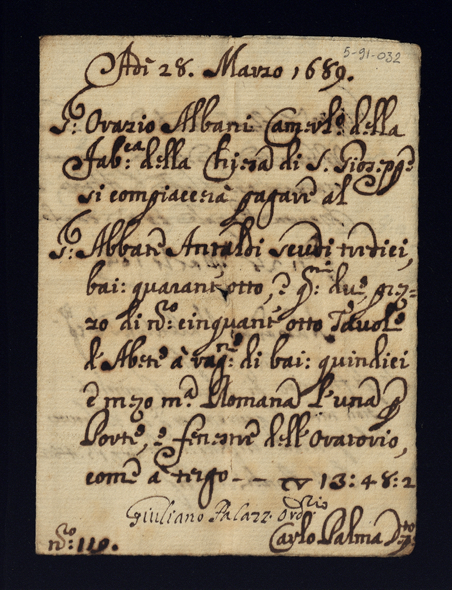 5-91-032
Adi 28. Marzo 1689.
S.r Orazio Albani Camerl.o della
Fab.ca della Chiesa di S. Gios.ppe
si compiacerà pagare al
S.r Abbate Antaldi scudi tredici,
bai: quarant'otto, e q.ni due
zo di n.ro cinquant'otto Tavole
d'Abete à rag.ne di bai: quindici
e mezo m.a Romana l'una p
Porte, e fenestre dell'Oratorio,
come à tergo - - 13:48:2
Giuliano Palazzi
Carlo Palma
n.ro: 119.